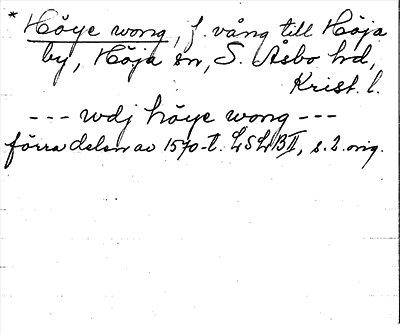 * Höye wong, f. vång till Höja
by, Höja sn, S. Åsbo hd,
Krist. l.
--- wdj höye wong ---
förra delen av 1570-t. LSLB II, s. 2. orig.